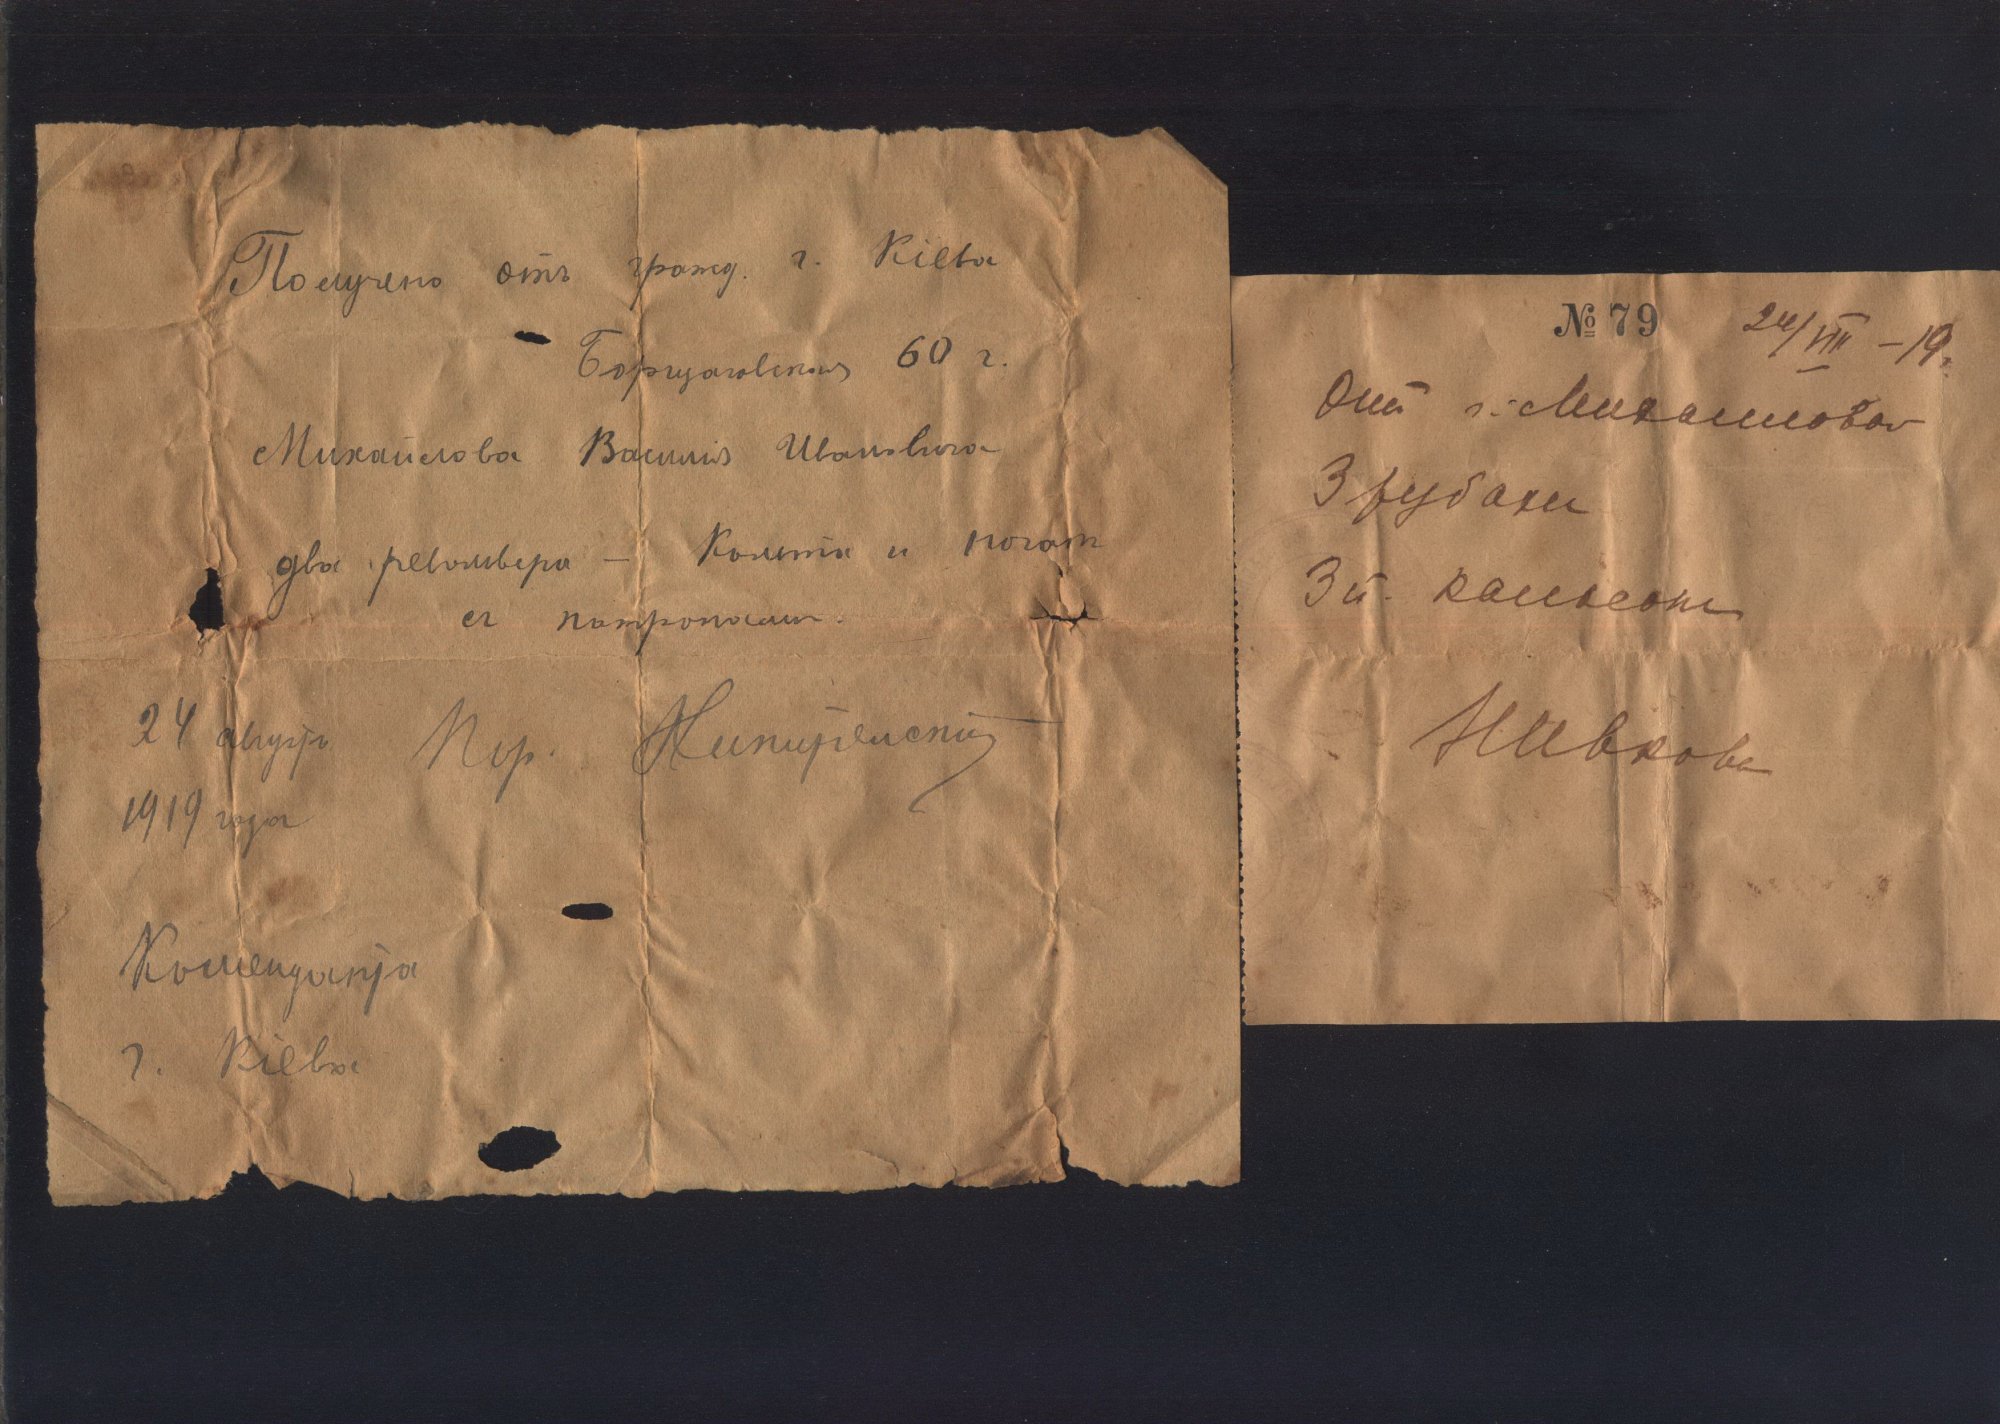 Получено отъ гражд. г. Кіева
Борщаговская 60 г.
Михайлова Василія Ивановича
два револьвера – Кольта и наган
съ патронами.
24 августа
1919 года
Пор.
Коменданта
г. Кіева
№ 79 24/VIII – 19 г.
Отъ г. Михайлова
3 рубахи
3 п. кальсон